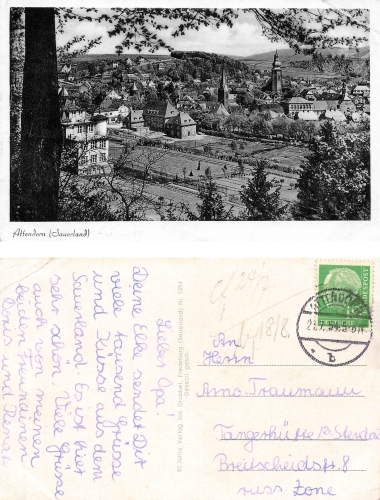 Attendorn (Sauerland)
Lieber Opa!
Deine Elke sendet Dir
viele tausend Grüsse
und Küsse aus dem
Sauerland. Es ist hier
sehr schön. Viele Grüsse
auch von meinen
beiden Freundinnen
Doris und Renate
Verlag Jos. Grobbel, Fredeburg (Sauerland) Nr. 5094
Gesetzl. gesch.
18/8.
ATTENDORN
b
An
Herrn
Arno Traumann
Tangerhütte b/Stendal
Breitscheidstr. 8
russ. Zone